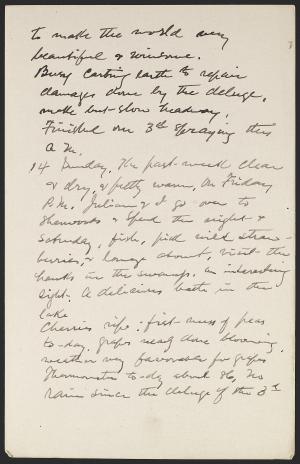 to make the world very
beautiful & winsome.
Busy carting earth to repair
damages done by the deluge,
make but slow headway.
Finished our 3d spraying this
A.M.
14 Sunday. The past week clear
& dry, & pretty warm. On Friday
P.M. Julian & I go over to
Sherwoods & spend the night &
Saturday, fish, pick wild straw-
berries, & lounge about, visit the
hawks in the swamps, an interesting
sight. A delicious bath in the
lake
Cherries ripe; first mess of peas
to-day. grapes nearly done blooming,
weather very favorable for grapes
Thermometer to-day about 86, no
rain since the deluge of the 3d